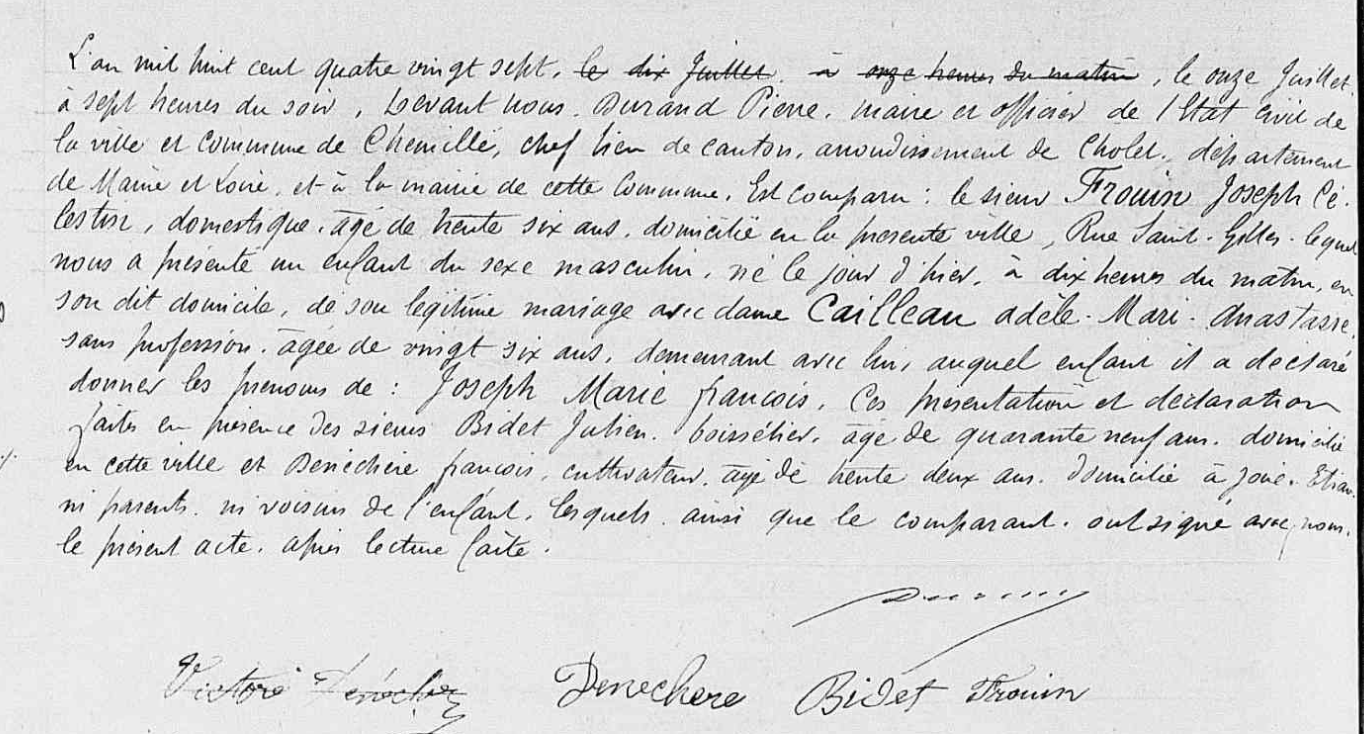 L'an mil huit cent quatre vingt sept, le dix Juillet. à onze heures du matin, le onze Juillet.
à sept heures du soir, Devant nous. Durand Pierre. maire et officier de l'Etat civil de
la ville et commune de Chemillé, chef lieu de canton, arrondissement de Cholet. département
de Maine et Loire, et à la mairie de cette Commune. Est comparu : le sieur Frouin Joseph Cé-
lestin, domestique. âgé de trente six ans. domicilié en la présente ville, Rue Saint-Gilles. lequel
nous a présenté un enfant du sexe masculin. né le jour d'hier, à dix heures du matin, en
son dit domicile, de son légitime mariage avec dame Cailleau adèle. Marie. Anastasie.
sans profession. âgée de vingt six ans, demeurant avec lui, auquel enfant il a déclaré
donner les prénoms de : Joseph Marie françois. Ces présentation et déclaration
faites en présence des sieurs Bidet Julien. boisselier. âgé de quarante neuf ans. domicilié
en cette ville et Denéchère françois, cultivateur. âgé de trente deux ans. domicilié à Joué. Etiau.
ni parents. ni voisins de l'enfant. lesquels. ainsi que le comparant. ont signé avec nous.
le présent acte. après lecture faite.
Durand
Victoré Denécher Denechere Bidet Frouin